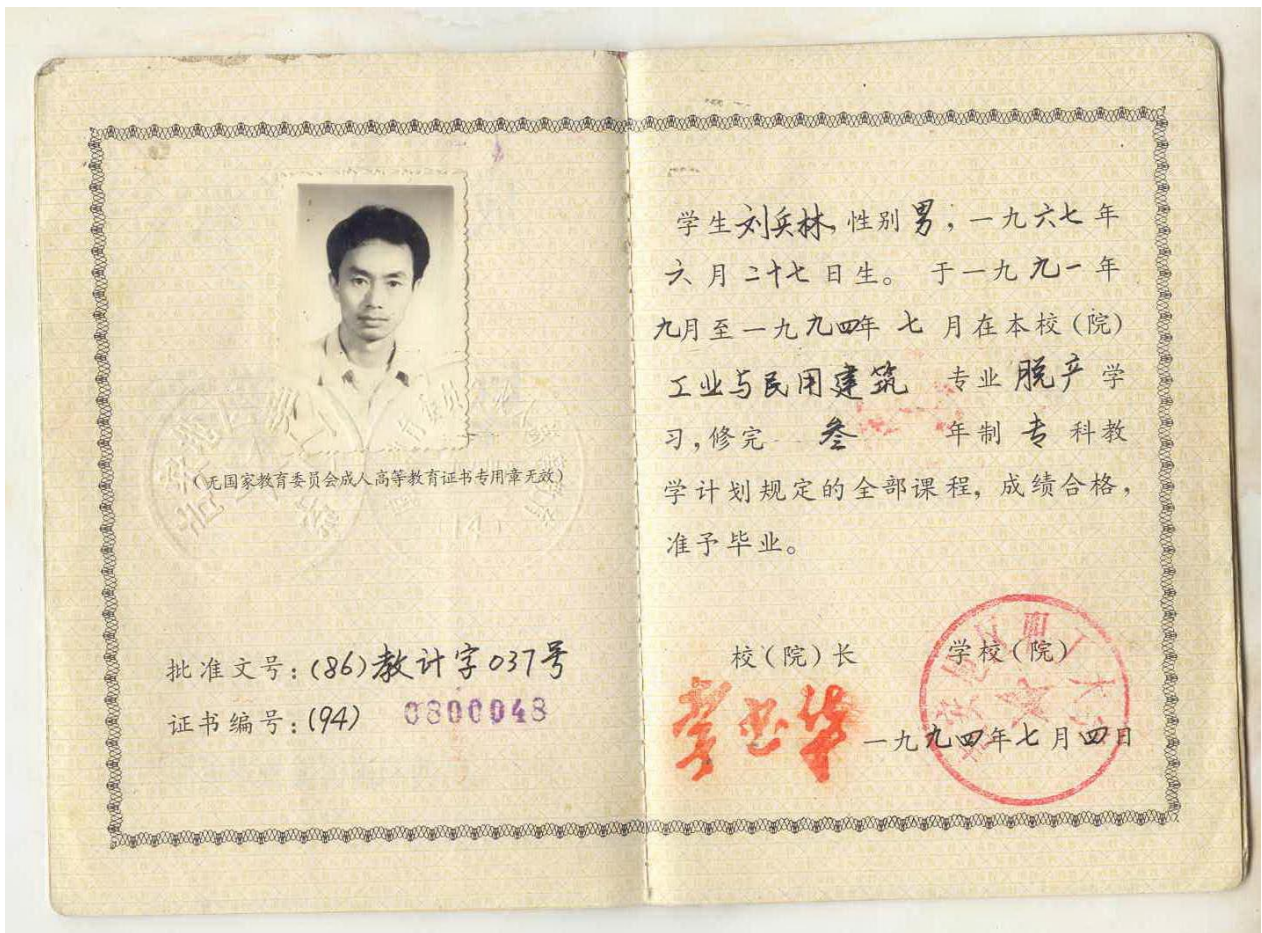 (无国家教育委员会成人高等教育证书专用章无效)
批准文号:(86)教计字037号
证书编号:(94) 0800048
学生刘兵林,性别男,一九六七年
六月二十七日生。 于一九九一年
九月至一九九四年 七 月在本校(院)
工业与民用建筑 专业脱产学
习,修完 叁 年制 专 科教
学计划规定的全部课程,成绩合格,
准予毕业。
校(院)长 学校(院)
一九九四年七月四日